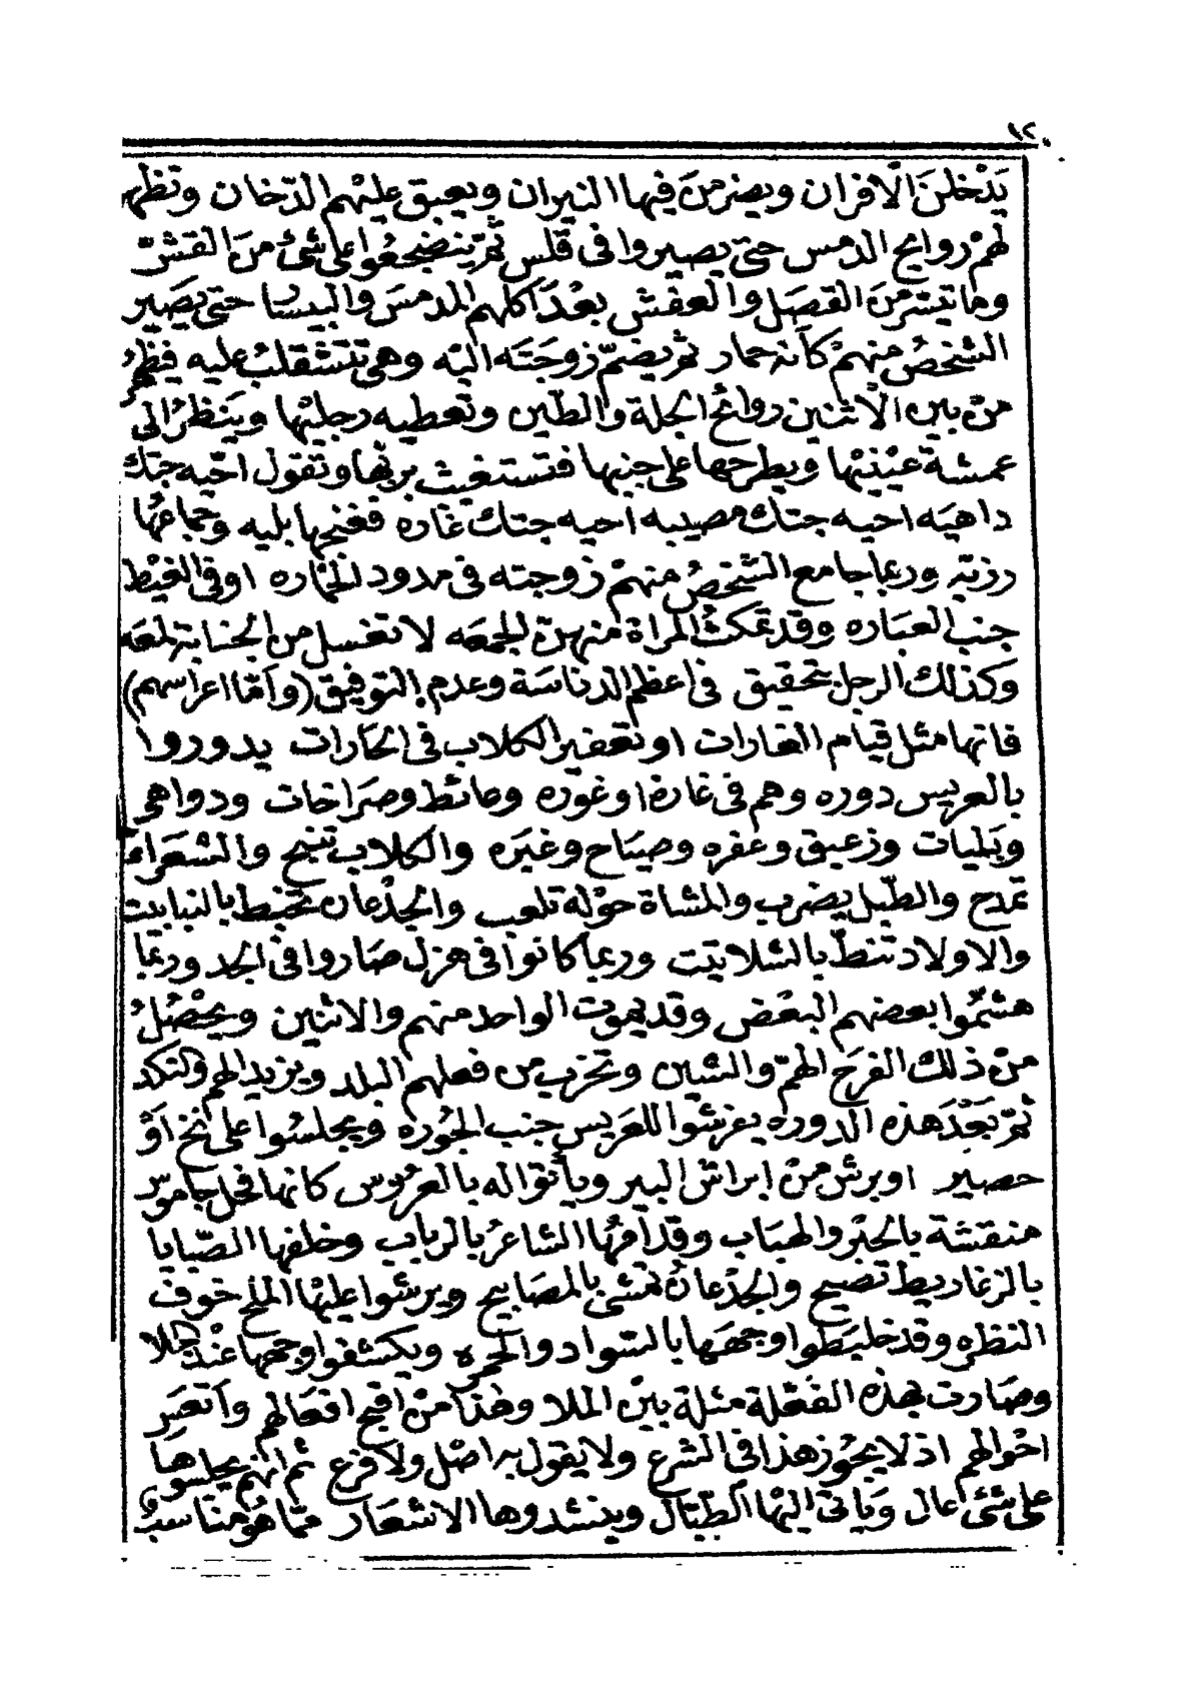 ١٢
يَدْخلنَ الْافران ويضرمنَ فيها النيران ويعبق عليْهم الدّخان وتظهر
لهمْ روايح الدمس حتى يصيروا فى قلس ثمّ ينضجعُوا على شئ منَ القشّ
وما تيسّر منَ القصَل والعفش بعْدَ اكلهم المدمسَ والبيسا حتى يصَير
الشخصُ منهمْ كأنه حمار ثم يضمّ زوجَتَه اليْه وهى تتشقلبُ عليه فيظهرُ
منْ بين الْاثنين روائح الجلة والطّين وتعطيه رجليْها وينظرُ الى
عمشة عيْنيْها ويطرحها على جنبها فتستغيث بربّها وتقول احّيه جتك
داهيَه احيه جتك مصيبه احيه جتك غاره فغنجها بليه وجماعُها
رزيّه وربما جامع الشخصُ منهمْ زوجته فى مدود الخّاره او فى الغيْط
جنب العبّاره وقد تمكثُ المراة منهنّ الجمعَه لا تغسل من الجنابة لمعَه
وكذلك الرجل بتحقيق فى اعظم الدناسَة وعدم التوفيق (وأمّا اعراسهم)
فانها مثل قيام الغارات او تعفير الكلاب فى الحَارات يدوروا
بالعريس دوره وهم فى غارة او غوره وعائط وصرَاخات ودواهى
وبَليات وزعيق وعفره وصيَاح وغيَره والكلاب تنبح والشعَراء
تمدح والطّبل يضرب والمشاة حوْله تلعب والجدْعان تخبط بالنبابيت
والاولاد تنطّ بالشلاتيت وربما كانوا فى هزل صَاروا فى الجد وربّما
هشّموا بعضهم البعْض وقد يموت الواحد منهم والاثنين ويحْصُلُ
منْ ذلك الفرَح الهمّ والشين وتخرب من فعلهم البلد ويزيد الهم والنكد
ثمّ بَعْدَ هذه الدوره يفرشوا للعَريس جنب الجوْره ويجلسُوا على نخ اوْ
حصير او برش منْ ابراش البير ويأتوا له بالعرُوس كانها فحل جاموس
منقشة بالحبْر والهبَاب وقد أمرّها الشاعرُ بالرباب وخلفها الصّبايا
بالزغاريط تصيح والجدْعانُ تمشى بالمصَابيح ويرشوا عليْها الملح خوف
النظره وقد خليَطوا وجهَها بالسّواد والحمره ويكشفوا وجهها عنْد الجلا
وصَارت بهذه الفعْلة مثلة بينْ الملا وهٰذا منْ اقبح افعَالهمْ وأتعَسِ
احْوالهمْ اذ لا يجُوز هذا فى الشرع ولا يقول به اصْل ولا فرْع ثم انهمْ يجلسُوها
على شئ عال وَيأتى اليْها الطّبّال وينشدوها الاشعَار ممّا هُو مناسبُ